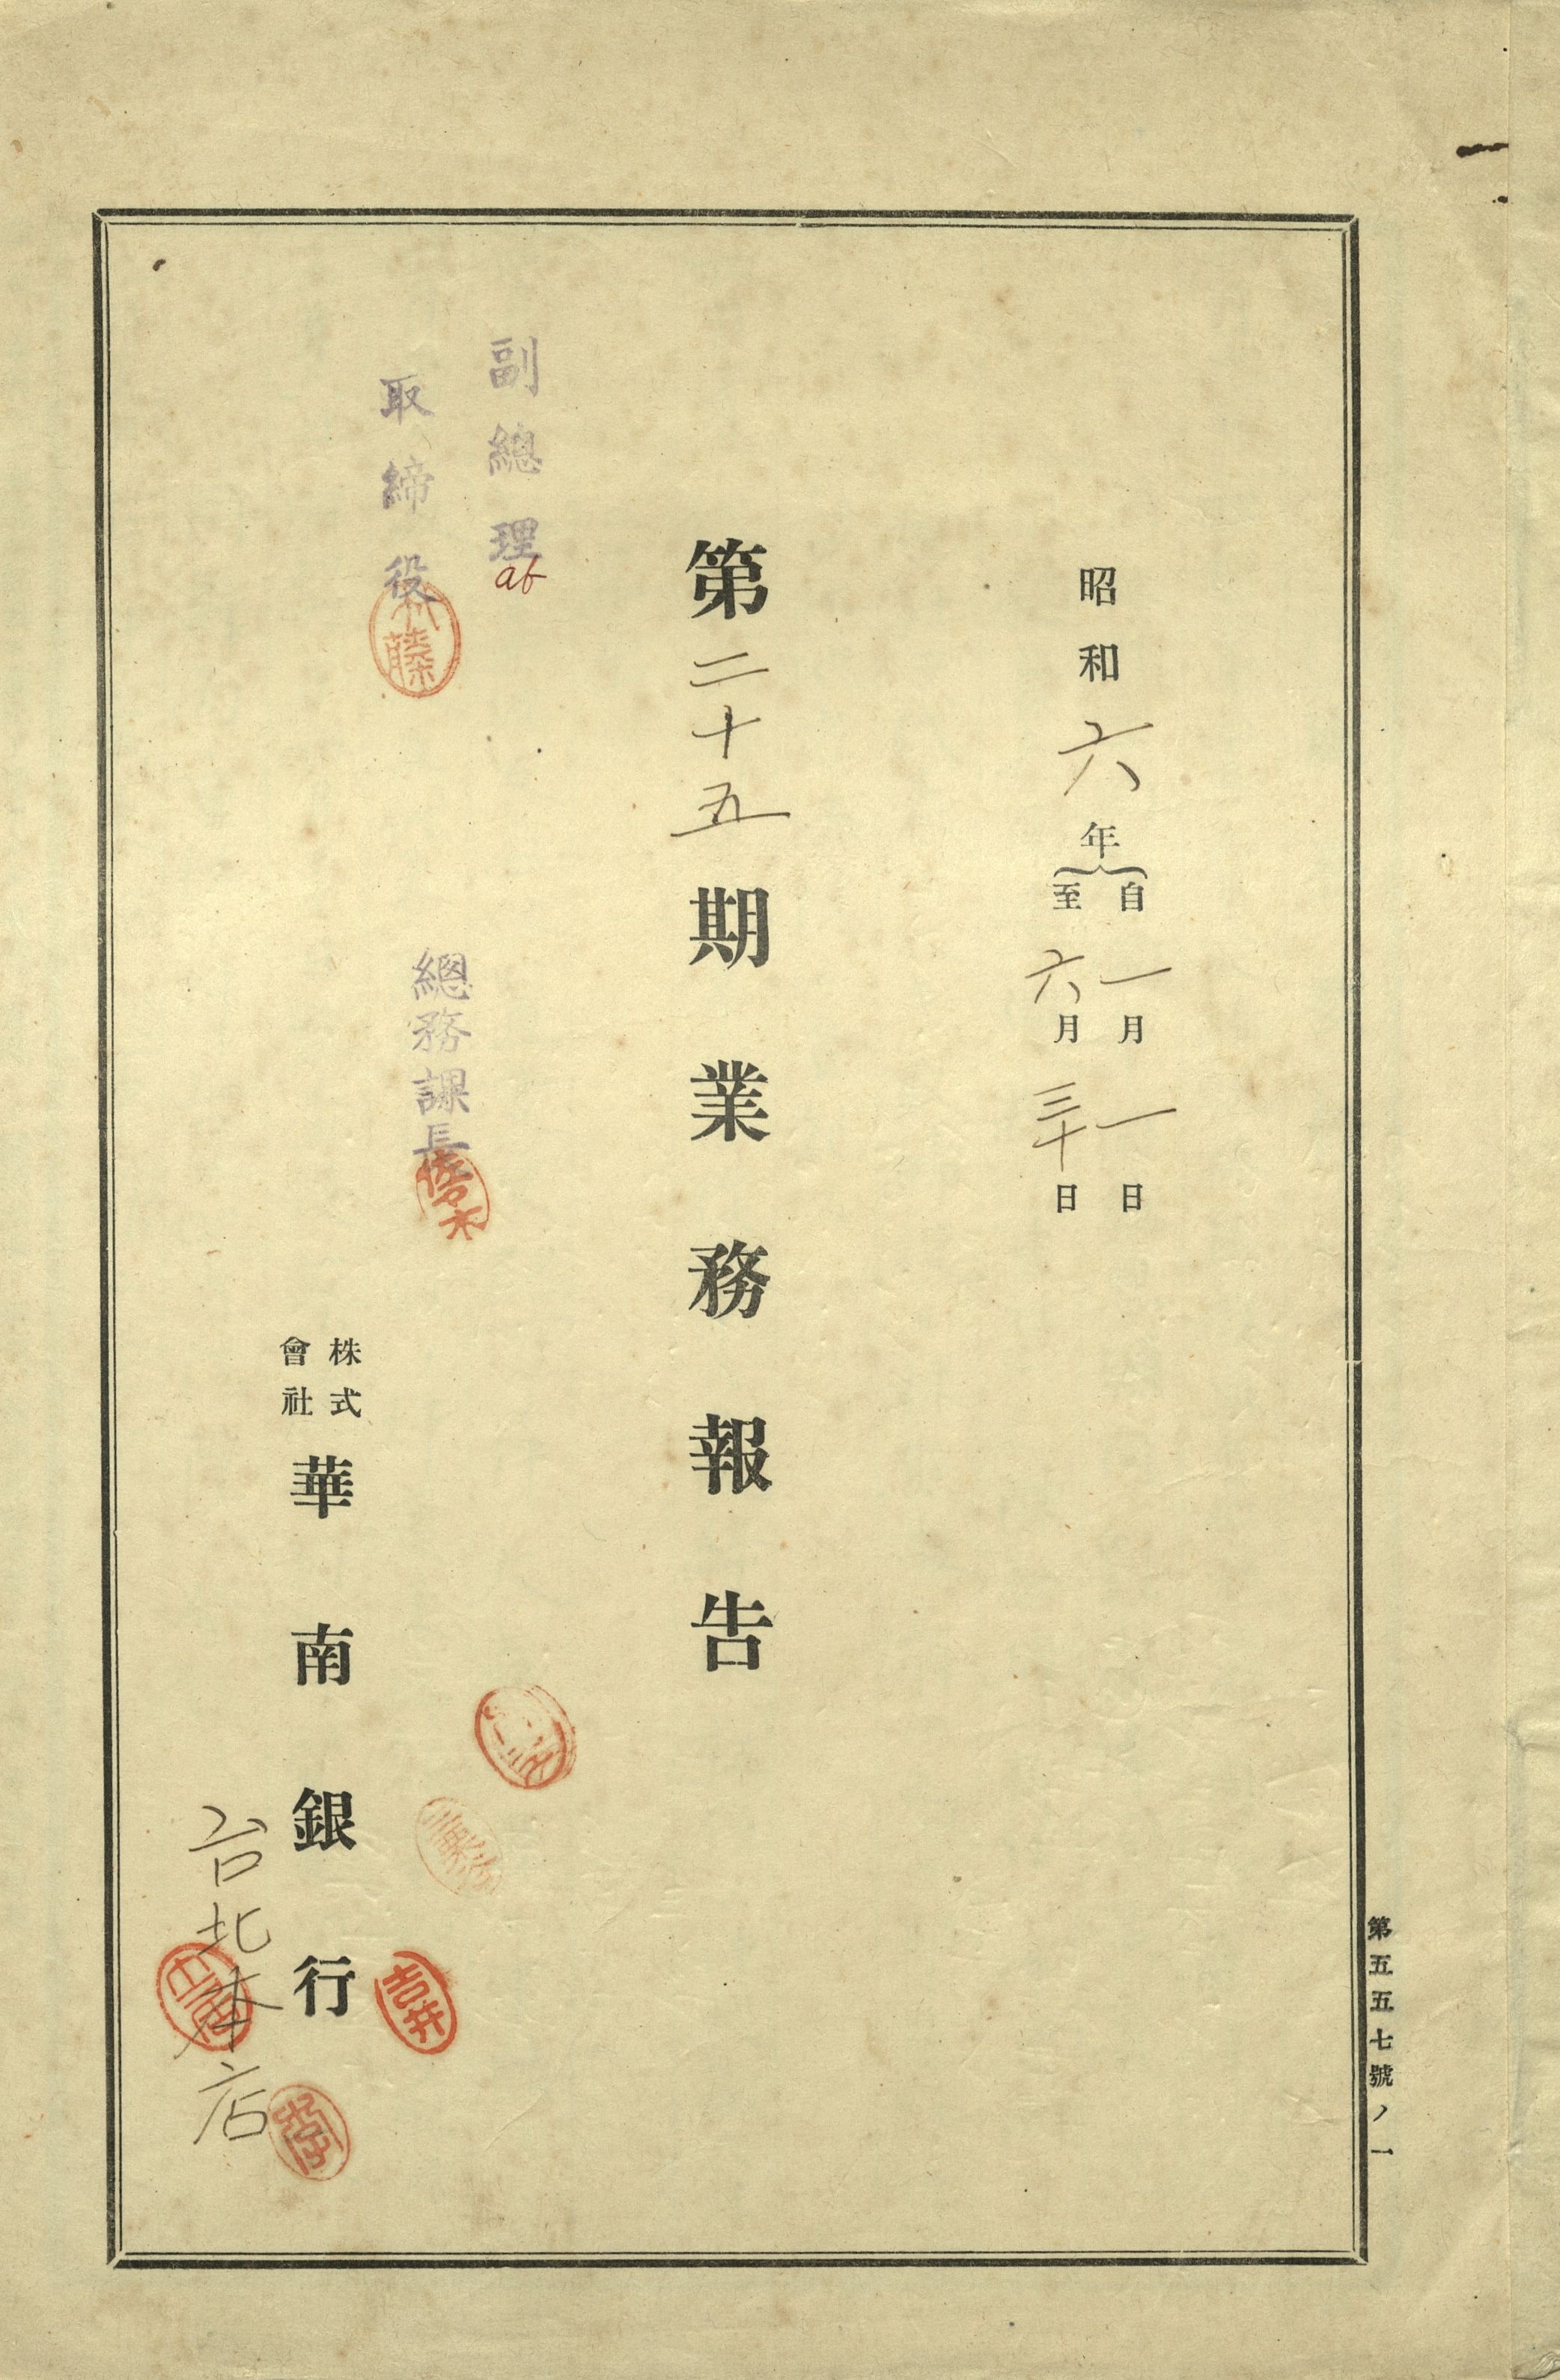 第五五七號ノ一
昭和六年
自一月一日
至六月三十日
第二十五期業務報告
副總理
取締役
總務課長
佐々木
株式
會社
華南銀行
吉井
台北本店